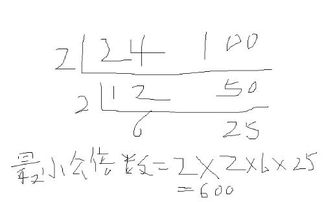 2 24 100
2 12 50
6 25
最小公倍数=2×2×6×25
=600